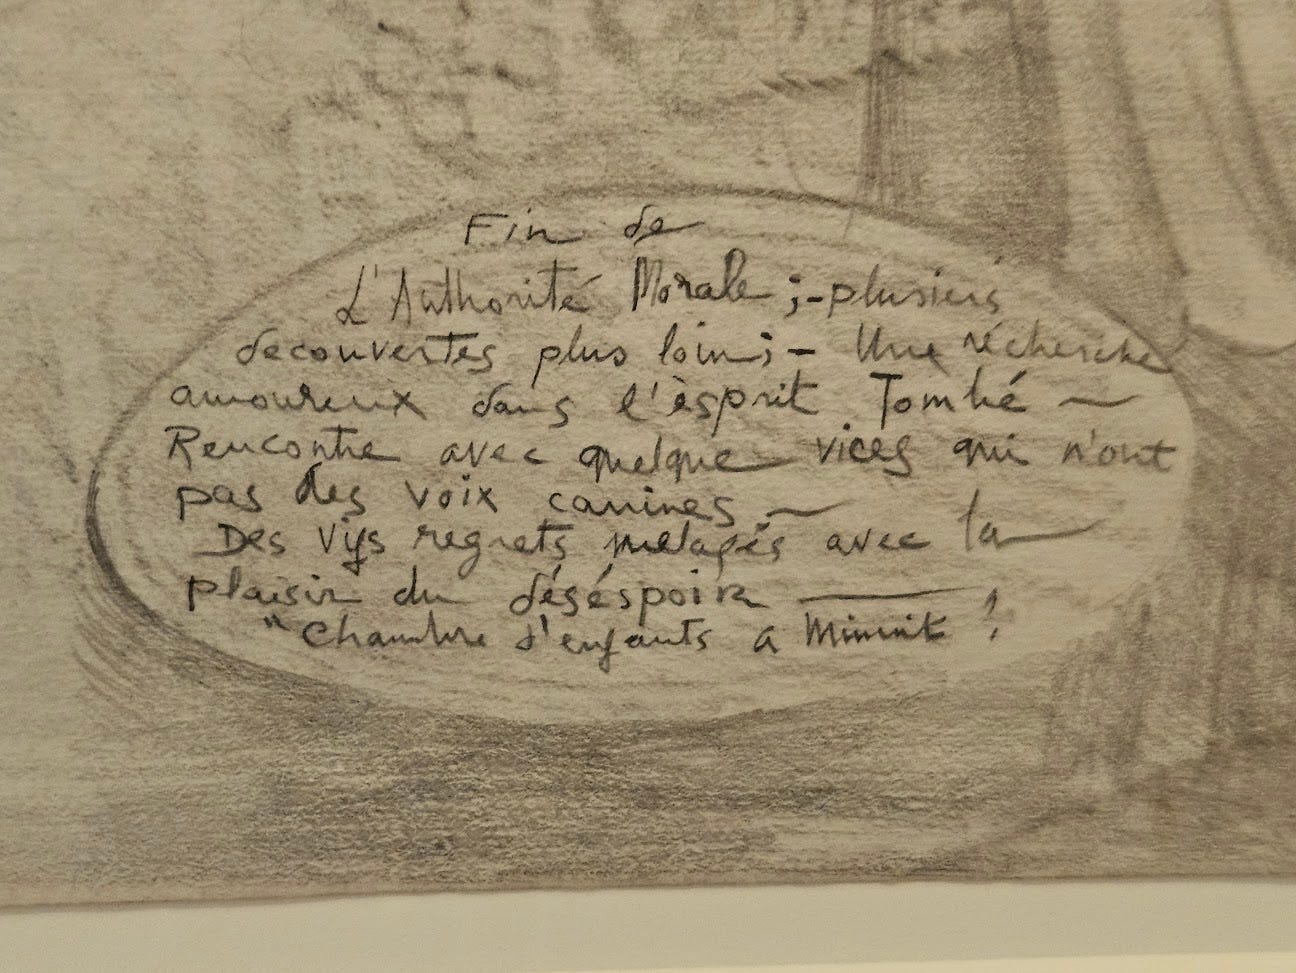 Fin de
L'Authorité Morale ;- plusieurs
decouvertes plus loin; - Une récherche
amoureux dans l'èsprit Tombé —
Rencontre avec quelque vices qui n'ont
pas des voix canines —
Des vifs regrets avec la
plaisir du déséspoir —
"Chambre d'enfants a Minuit !